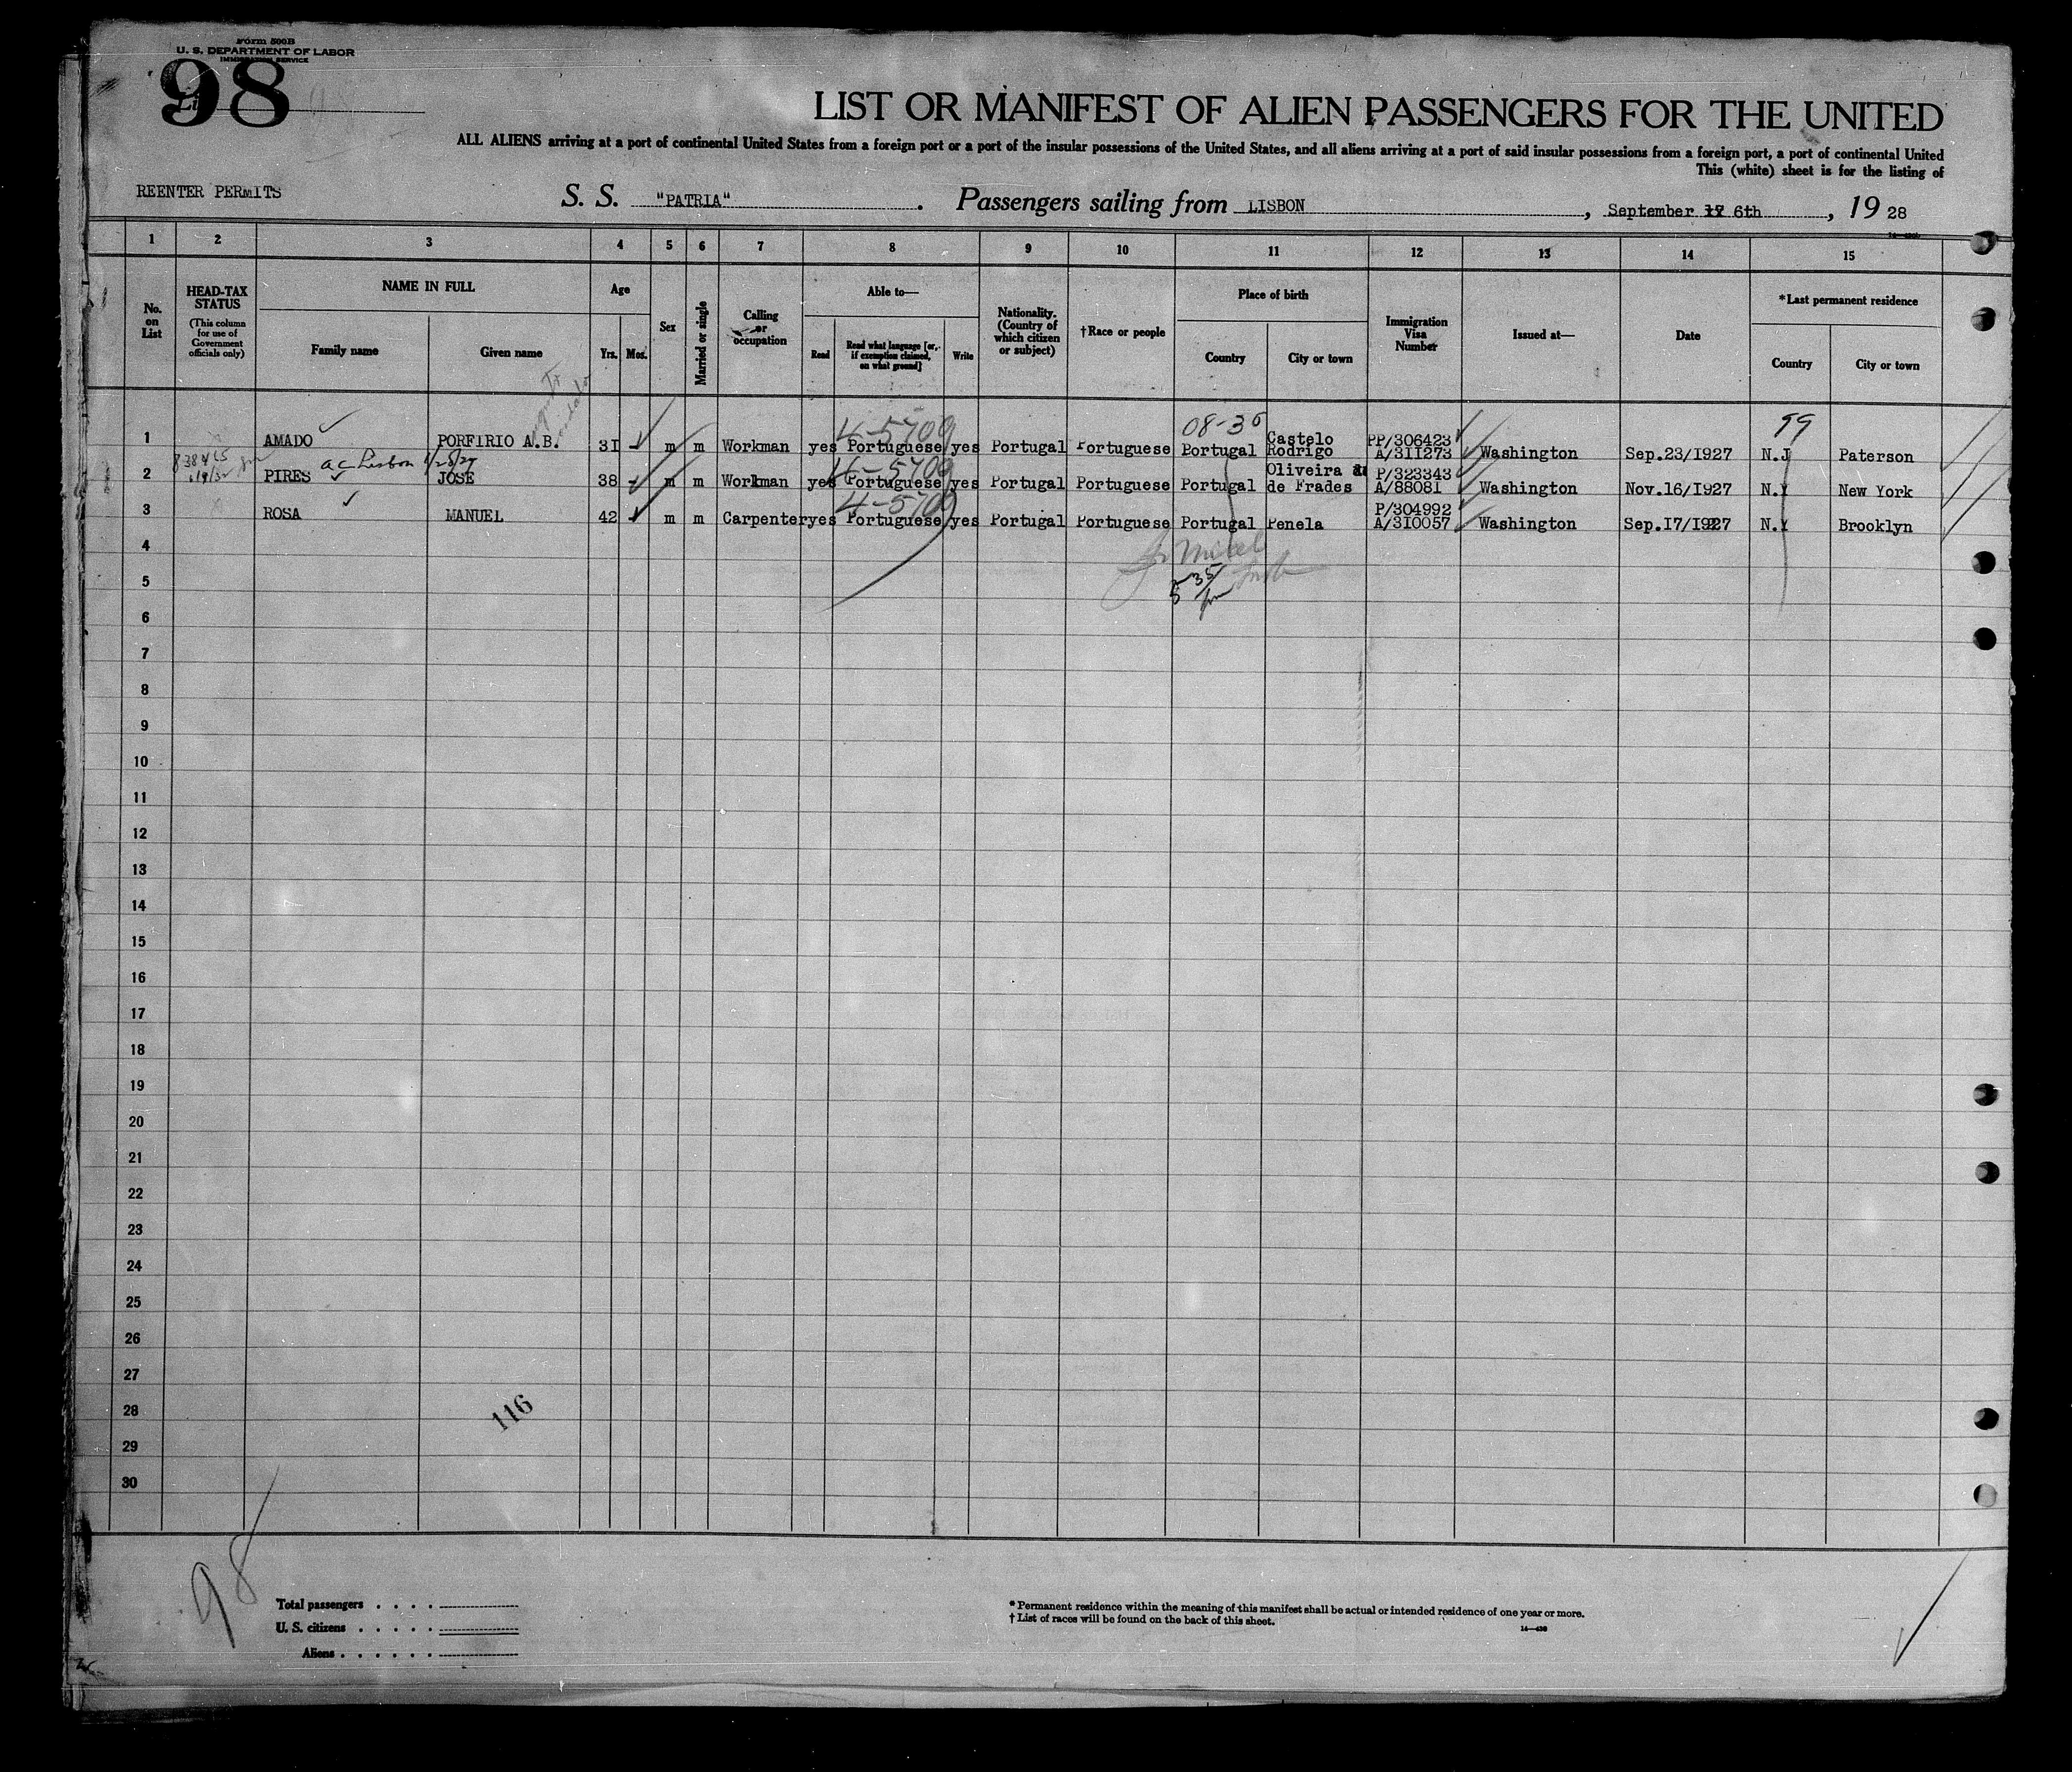 Form 500B
U. S. DEPARTMENT OF LABOR
IMMIGRATION SERVICE
98
LIST OR MANIFEST OF ALIEN PASSENGERS FOR THE UNITED
ALL ALIENS arriving at a port of continental United States from a foreign port or a port of the insular possessions of the United States, and all aliens arriving at a port of said insular possessions from a foreign port, a port of continental United
This (white) sheet is for the listing of
REENTER PERMITS S. S. "PATRIA". Passengers sailing from LISBON, September 6th, 19 28
1 2 3 4 5 6 7 8 9 10 11 12 13 14 15
No. on List
HEAD-TAX STATUS
(This column for use of Government officials only)
NAME IN FULL
Family name
Given name
Age
Yrs.
Mos.
Sex
Married or single
Calling or occupation
Able to—
Read
Read what language [or, if exemption claimed, on what ground]
Write
Nationality. (Country of which citizen or subject)
†Race or people
Place of birth
Country
City or town
Immigration Visa Number
Issued at—
Date
*Last permanent residence
Country
City or town
4-5709 08-36 99
1 AMADO PORFIRIO A.B. 31 m m Workman yes Portuguese yes Portugal Portuguese Portugal Castelo Rodrigo PP/306423 A/311273 Washington Sep.23/1927 N.J Paterson
ac Lisbon
4-5709
2 PIRES JOSE 38 m m Workman yes Portuguese yes Portugal Portuguese Portugal Oliveira de Frades P/323343 A/88081 Washington Nov.16/1927 N.Y New York
4-5709
3 ROSA MANUEL 42 m m Carpenter yes Portuguese yes Portugal Portuguese Portugal Penela P/304992 A/310057 Washington Sep.17/1927 N.Y Brooklyn
4
5
6
7
8
9
10
11
12
13
14
15
16
17
18
19
20
21
22
23
24
25
26
27
28
29
30
116
98
Total passengers . . . .
U. S. citizens . . . . .
Aliens . . . . . .
* Permanent residence within the meaning of this manifest shall be actual or intended residence of one year or more.
† List of races will be found on the back of this sheet.